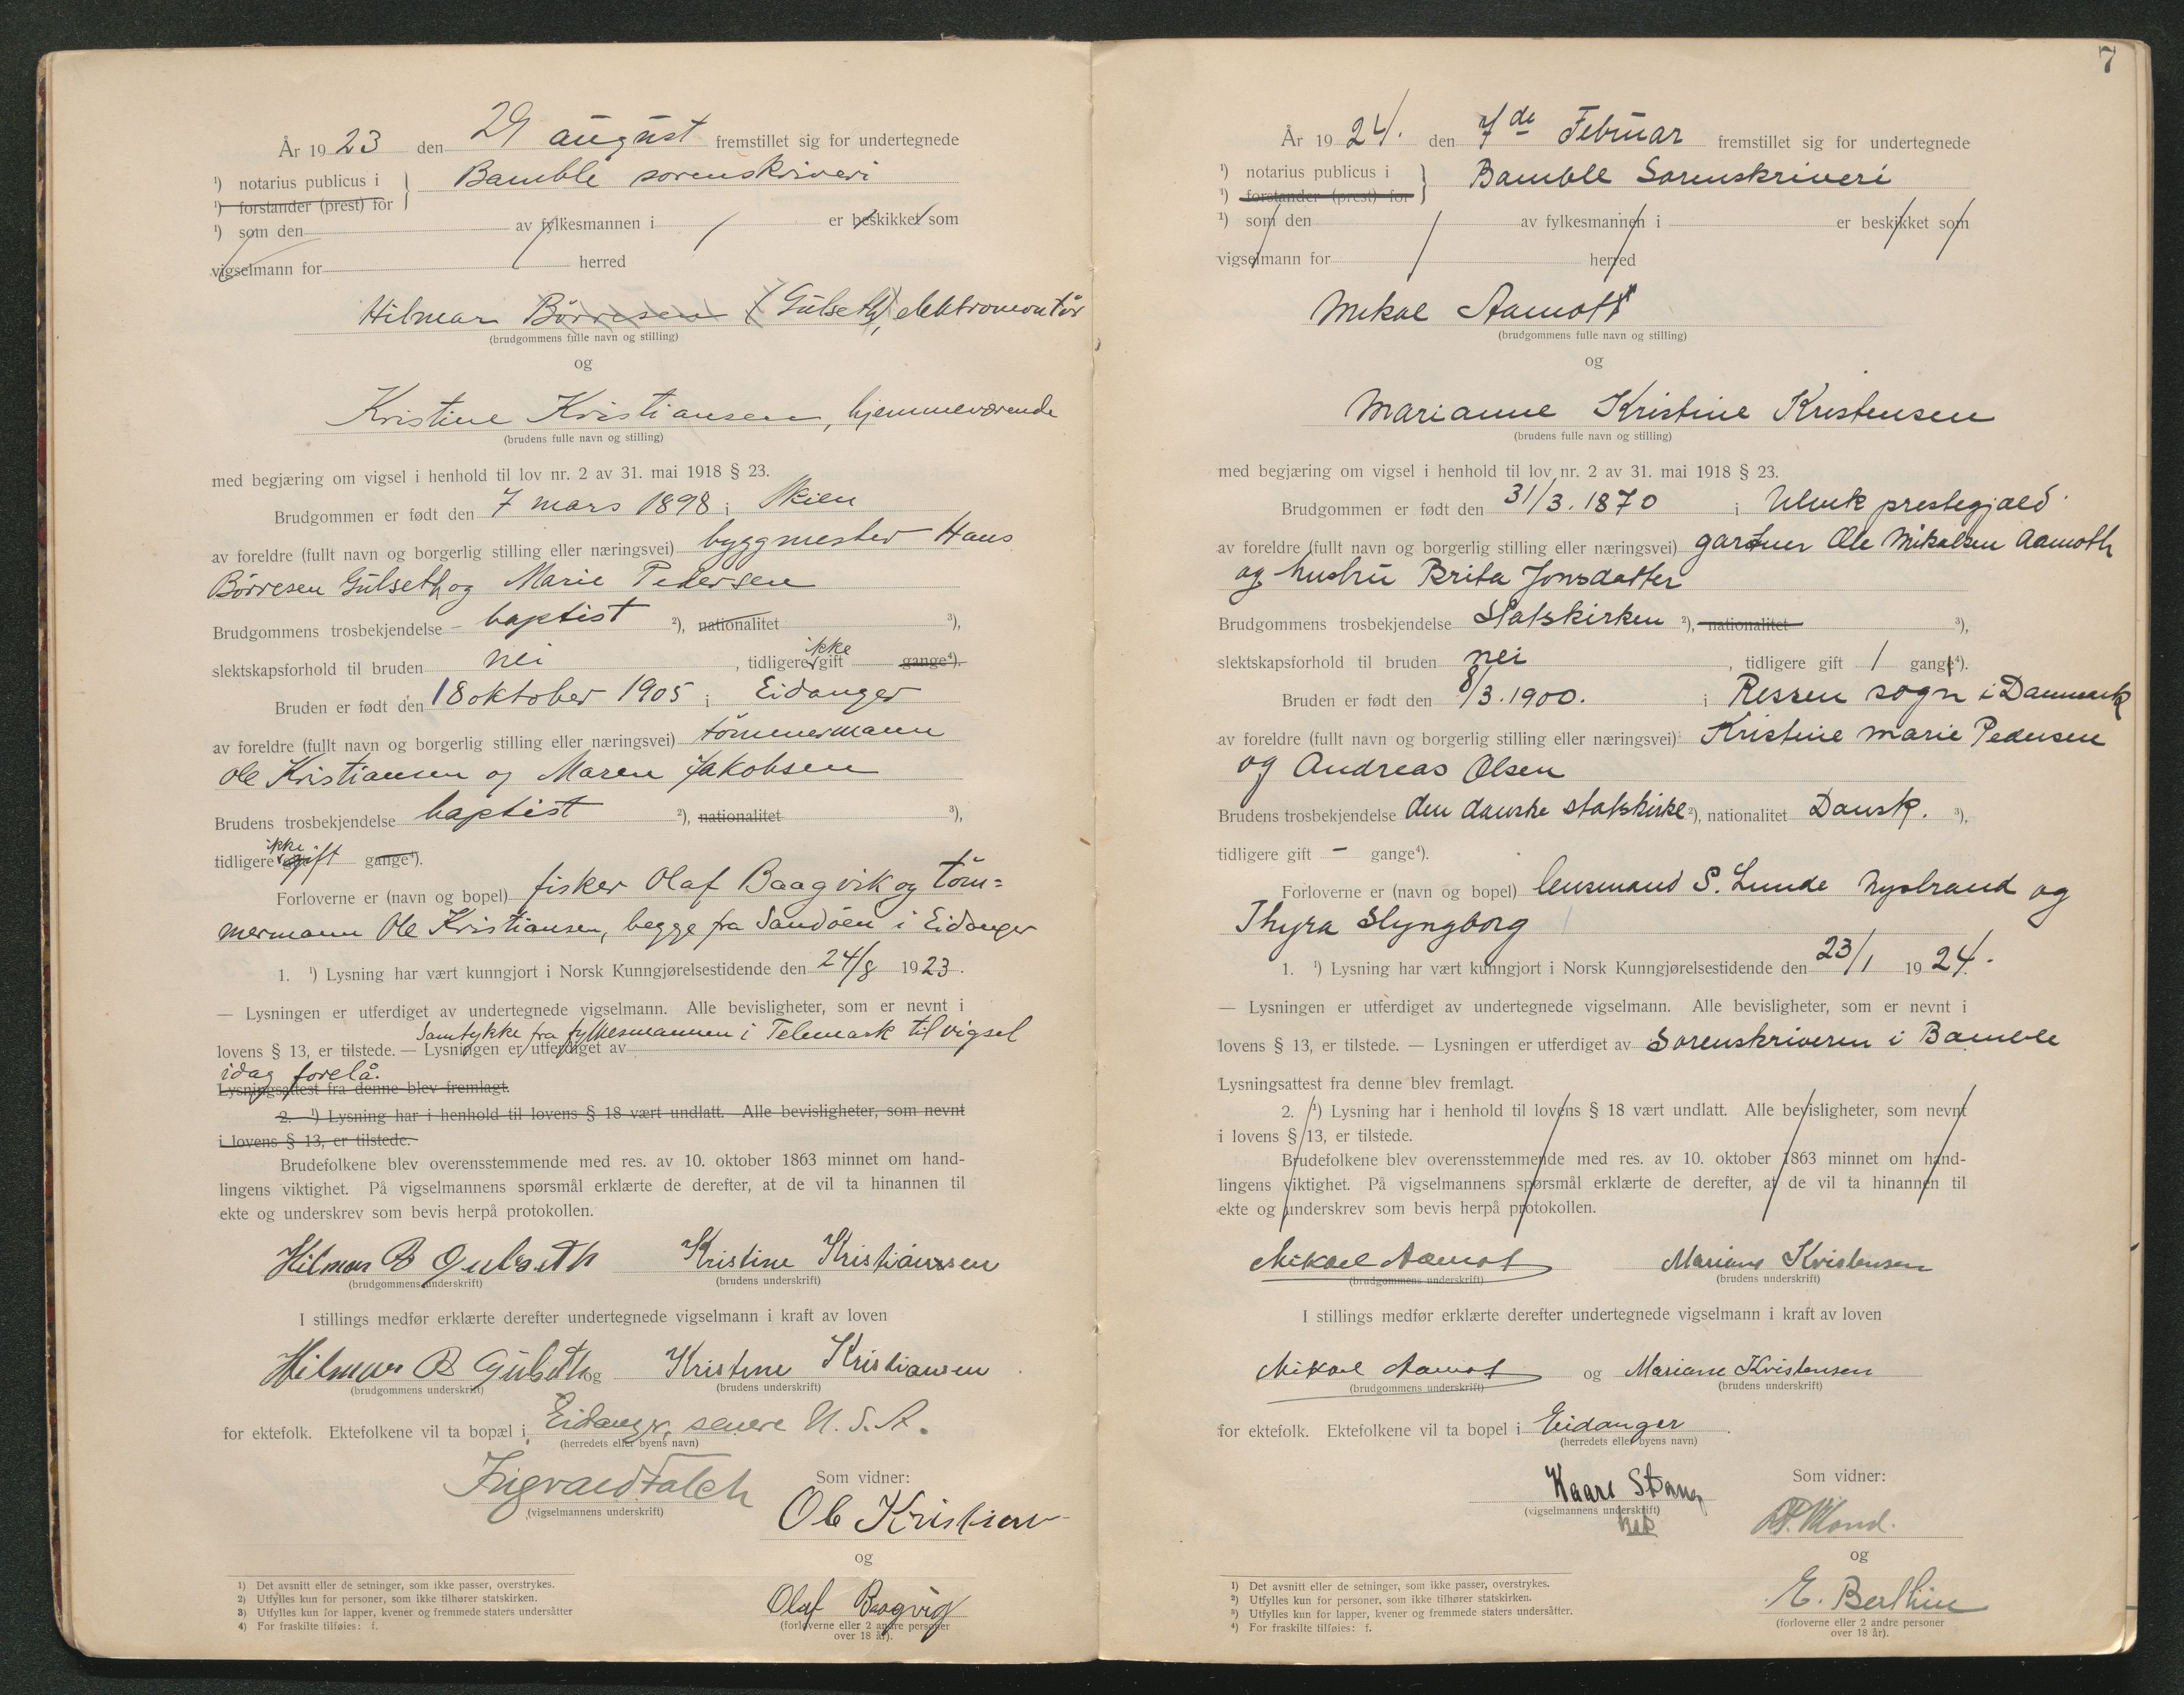 År 1923 den 29 august fremstillet sig for undertegnede
¹) notarius publicus i } Bamble sorenskriveri
¹) forstander (prest) for
¹) som den av fylkesmannen i er beskikket som
vigselmann for herred
Hilmar Börresen (Gulseth), elektromontör
(brudgommens fulle navn og stilling)
og
Kristine Kristiansen, hjemmeværende
(brudens fulle navn og stilling)
med begjæring om vigsel i henhold til lov nr. 2 av 31. mai 1918 § 23.
Brudgommen er født den 7 mars 1898 i Skien
av foreldre (fullt navn og borgerlig stilling eller næringsvei) byggmester Hans
Börresen Gulseth og Marie Pedersen
Brudgommens trosbekjendelse baptist ²), nationalitet ³),
slektskapsforhold til bruden nei, tidligere ikke gift gange⁴).
Bruden er født den 18 oktober 1905 i Eidanger
av foreldre (fullt navn og borgerlig stilling eller næringsvei) tömmermann
Ole Kristiansen og Maren Jakobsen
Brudens trosbekjendelse baptist ²), nationalitet ³),
tidligere ikke gift gange⁴).
Forloverne er (navn og bopel) fisker Olaf Baagvik og töm=
mermann Ole Kristiansen, begge fra Sandöen i Eidanger
1. ¹) Lysning har vært kunngjort i Norsk Kunngjørelsestidende den 24/8 1923.
— Lysningen er utferdiget av undertegnede vigselmann. Alle bevisligheter, som er nevnt i
Samtykke fra fylkesmannen i Telemark til vigsel
lovens § 13, er tilstede. — Lysningen er utferdiget av
idag forelå.
Lysningsattest fra denne blev fremlagt.
2. ¹) Lysning har i henhold til lovens § 18 vært undlatt. Alle bevisligheter, som nevnt
i lovens § 13, er tilstede.
Brudefolkene blev overensstemmende med res. av 10. oktober 1863 minnet om hand-
lingens viktighet. På vigselmannens spørsmål erklærte de derefter, at de vil ta hinannen til
ekte og underskrev som bevis herpå protokollen.
Hilmar B Gulseth Kristine Kristiansen
(brudgommens underskrift) (brudens underskrift)
I stillings medfør erklærte derefter undertegnede vigselmann i kraft av loven
Hilmar B Gulseth og Kristine Kristiansen
(brudgommens underskrift) (brudens underskrift)
for ektefolk. Ektefolkene vil ta bopæl i Eidanger, senere U. S. A.
(herredets eller byens navn)
Ingvald Falch
(vigselmannens underskrift)
Som vidner:
Ole Kristiansen
og
Olaf Baagvig
(forloverne eller 2 andre personer
over 18 år).
1) Det avsnitt eller de setninger, som ikke passer, overstrykes.
2) Utfylles kun for personer, som ikke tilhører statskirken.
3) Utfylles kun for lapper, kvener og fremmede staters undersåtter
4) For fraskilte tilføies: f.
7
År 1924. den 7de Februar fremstillet sig for undertegnede
¹) notarius publicus i } Bamble Sorenskriveri
¹) forstander (prest) for
¹) som den av fylkesmannen i er beskikket som
vigselmann for herred
Mikal Aamott
(brudgommens fulle navn og stilling)
og
Marianne Kristine Kristensen
(brudens fulle navn og stilling)
med begjæring om vigsel i henhold til lov nr. 2 av 31. mai 1918 § 23.
Brudgommen er født den 31/3. 1870 i Ulvik prestegjeld
av foreldre (fullt navn og borgerlig stilling eller næringsvei) gartner Ole Mikalsen Aamoth
og hustru Brita Jonsdatter
Brudgommens trosbekjendelse Statskirken ²), nationalitet ³),
slektskapsforhold til bruden nei, tidligere gift 1 gang⁴).
Bruden er født den 8/3. 1900. i Ressen sogn i Danmark
av foreldre (fullt navn og borgerlig stilling eller næringsvei) Kristine Marie Pedersen
og Andreas Olsen
Brudens trosbekjendelse den danske statskirke ²), nationalitet Dansk. ³),
tidligere gift – gange⁴).
Forloverne er (navn og bopel) lensmand S. Lunde Nystrand og
Thyra Slyngborg
1. ¹) Lysning har vært kunngjort i Norsk Kunngjørelsestidende den 23/1 1924.
— Lysningen er utferdiget av undertegnede vigselmann. Alle bevisligheter, som er nevnt i
lovens § 13, er tilstede. — Lysningen er utferdiget av Sorenskriveren i Bamble
Lysningsattest fra denne blev fremlagt.
2. ¹) Lysning har i henhold til lovens § 18 vært undlatt. Alle bevisligheter, som nevnt
i lovens § 13, er tilstede.
Brudefolkene blev overensstemmende med res. av 10. oktober 1863 minnet om hand-
lingens viktighet. På vigselmannens spørsmål erklærte de derefter, at de vil ta hinannen til
ekte og underskrev som bevis herpå protokollen.
Mikael Aamot Mariane Kristensen
(brudgommens underskrift) (brudens underskrift)
I stillings medfør erklærte derefter undertegnede vigselmann i kraft av loven
Mikael Aamot og Mariane Kristensen
(brudgommens underskrift) (brudens underskrift)
for ektefolk. Ektefolkene vil ta bopel i Eidanger
(herredets eller byens navn)
Kaare Stang
(vigselmannens underskrift)
Som vidner:
og
E. Berthin
(forloverne eller 2 andre personer
over 18 år).
1) Det avsnitt eller de setninger, som ikke passer, overstrykes.
2) Utfylles kun for personer, som ikke tilhører statskirken.
3) Utfylles kun for lapper, kvener og fremmede staters undersåtter.
4) For fraskilte tilføies: f.